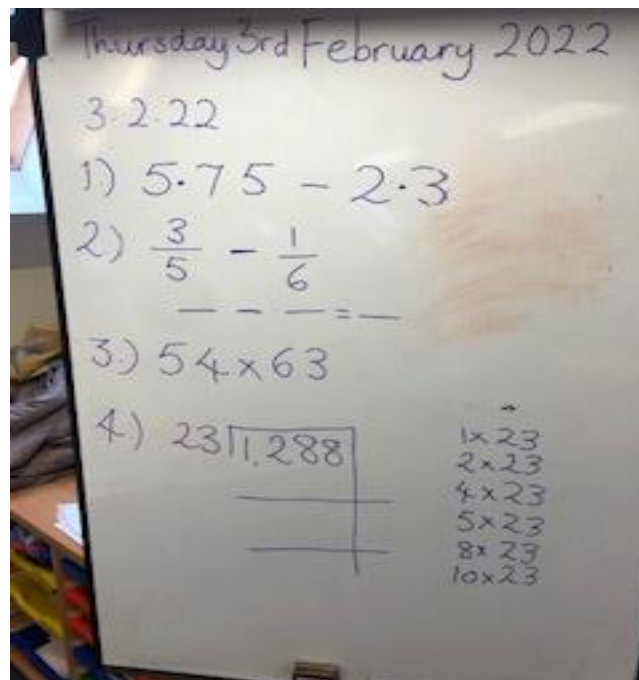 Thursday 3rd February 2022
3.2.22
1) 5.75 - 2.3
2) 3/5 - 1/6
_ - _ = _
3.) 54 x 63
4.) 23 1,288
1x 23
2x23
4x23
5x23
8x 23
10x23